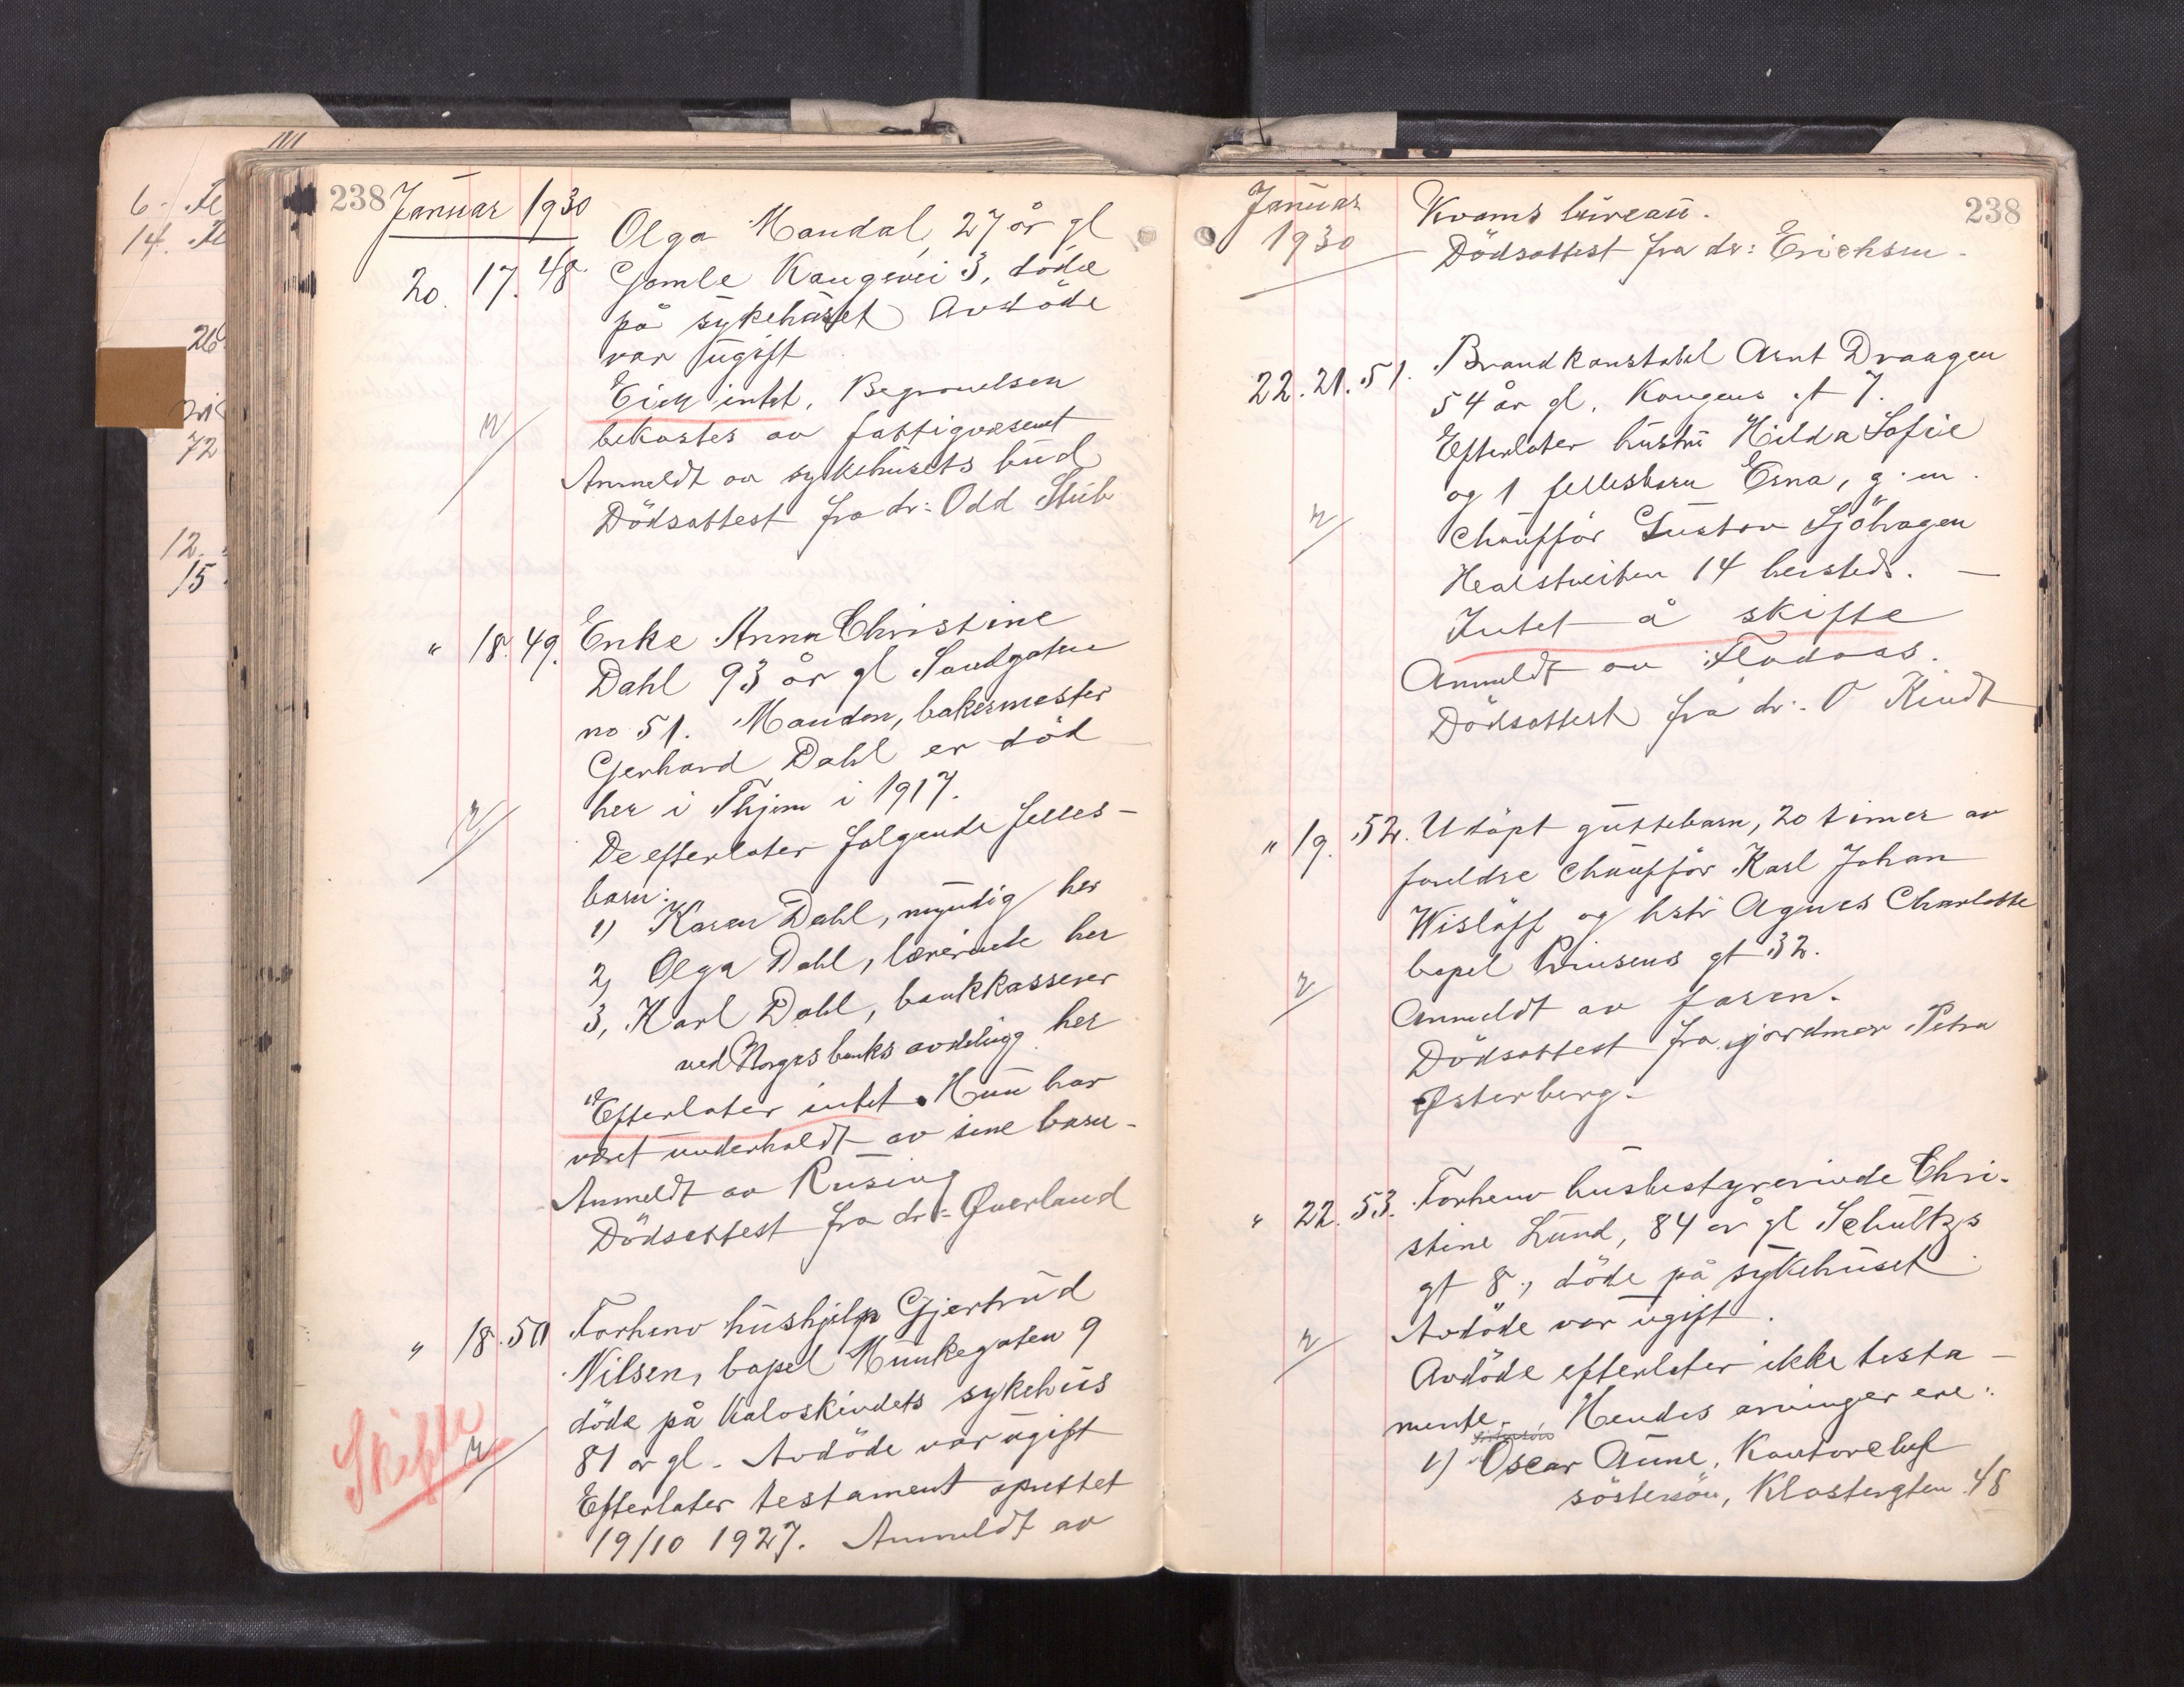 238 Januar 1930
Olga Mandal, 27 år gl
20. 17. 48 Gamle Kongevei 3, döde
på sykehuset Avdöde
var ugift
Eier intet. Begravelsen
bekostes av fattigvæsent
Anmeldt av sykehusets bud
Dödsattest fra dr: Odd Stub
" 18. 49. Enke Anna Christine
Dahl 93 år gl Sandgaten
no 51. Manden, bakermester
Gerhard Dahl er död
her i Thjem i 1917.
De efterlater følgende felles-
barn:
1) Karen Dahl, myndig her
2, Olga Dahl, lærerinde her
3, Karl Dahl, bankkasserer
ved Norges banks avdeling her
Efterlater intet. Hun har
været underholdt av sine barn-
Anmeldt av Rusing
Dödsattest fra dr: Øverland
" 18. 50 Forhenv hushjelp Gjertrud
Nilsen, bopel Munkegaten 9
döde på Kalvskindets sykehus
81 år gl. Avdöde var ugift
Skifte
Efterlater testament oprettet
19/10 1927. Anmeldt av
6
14.
26
72
12.
15
Januar 1930
238
Kvams büreau.
Dödsattest fra dr: Erichsen.
22. 21. 51. Brandkonstabel Arnt Draagen
54 år gl, Kongens gt 7.
Efterlater hustru Hilda Sofie
og 1 fellesbarn Erna, g.m.
Chauffør Gustav Sjöhagen
14 hersteds. —
Intet å skifte
Anmeldt av Flodaas.
Dödsattest fra dr: O Kindt
" 19. 52. Udöpt guttebarn, 20 timer av
foreldre Chauffør Karl Johan
Wislöff og hstr Agnes Charlotte
bopel Prinsens gt 32.
Anmeldt av faren.
Dödsattest fra jordmor Petra
Østerberg.
" 22. 53. Forhenv husbestyrerinde Chri-
stine Lund, 84 år gl Schultzs
gt 8, döde på sykehuset.
Avdöde var ugift.
Avdöde efterlater ikke testa-
mente. Hendes arvinger ere:
1) Oscar Aune, Kontorchef
söstersön, Klostergten 48